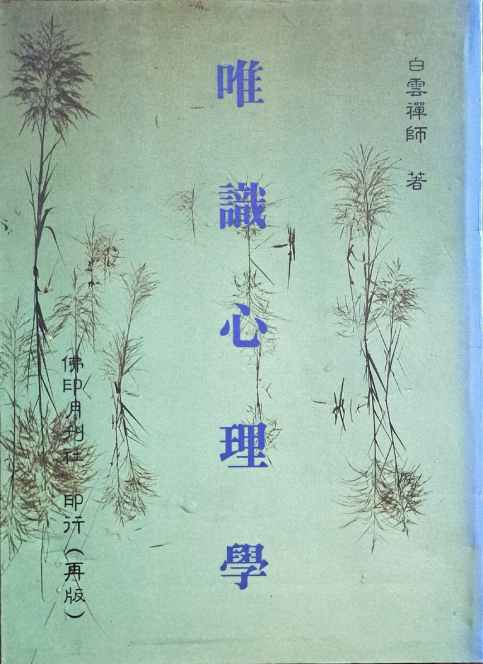 白雲禪師 著
唯識心理學
佛印月刊社 印行(再版)